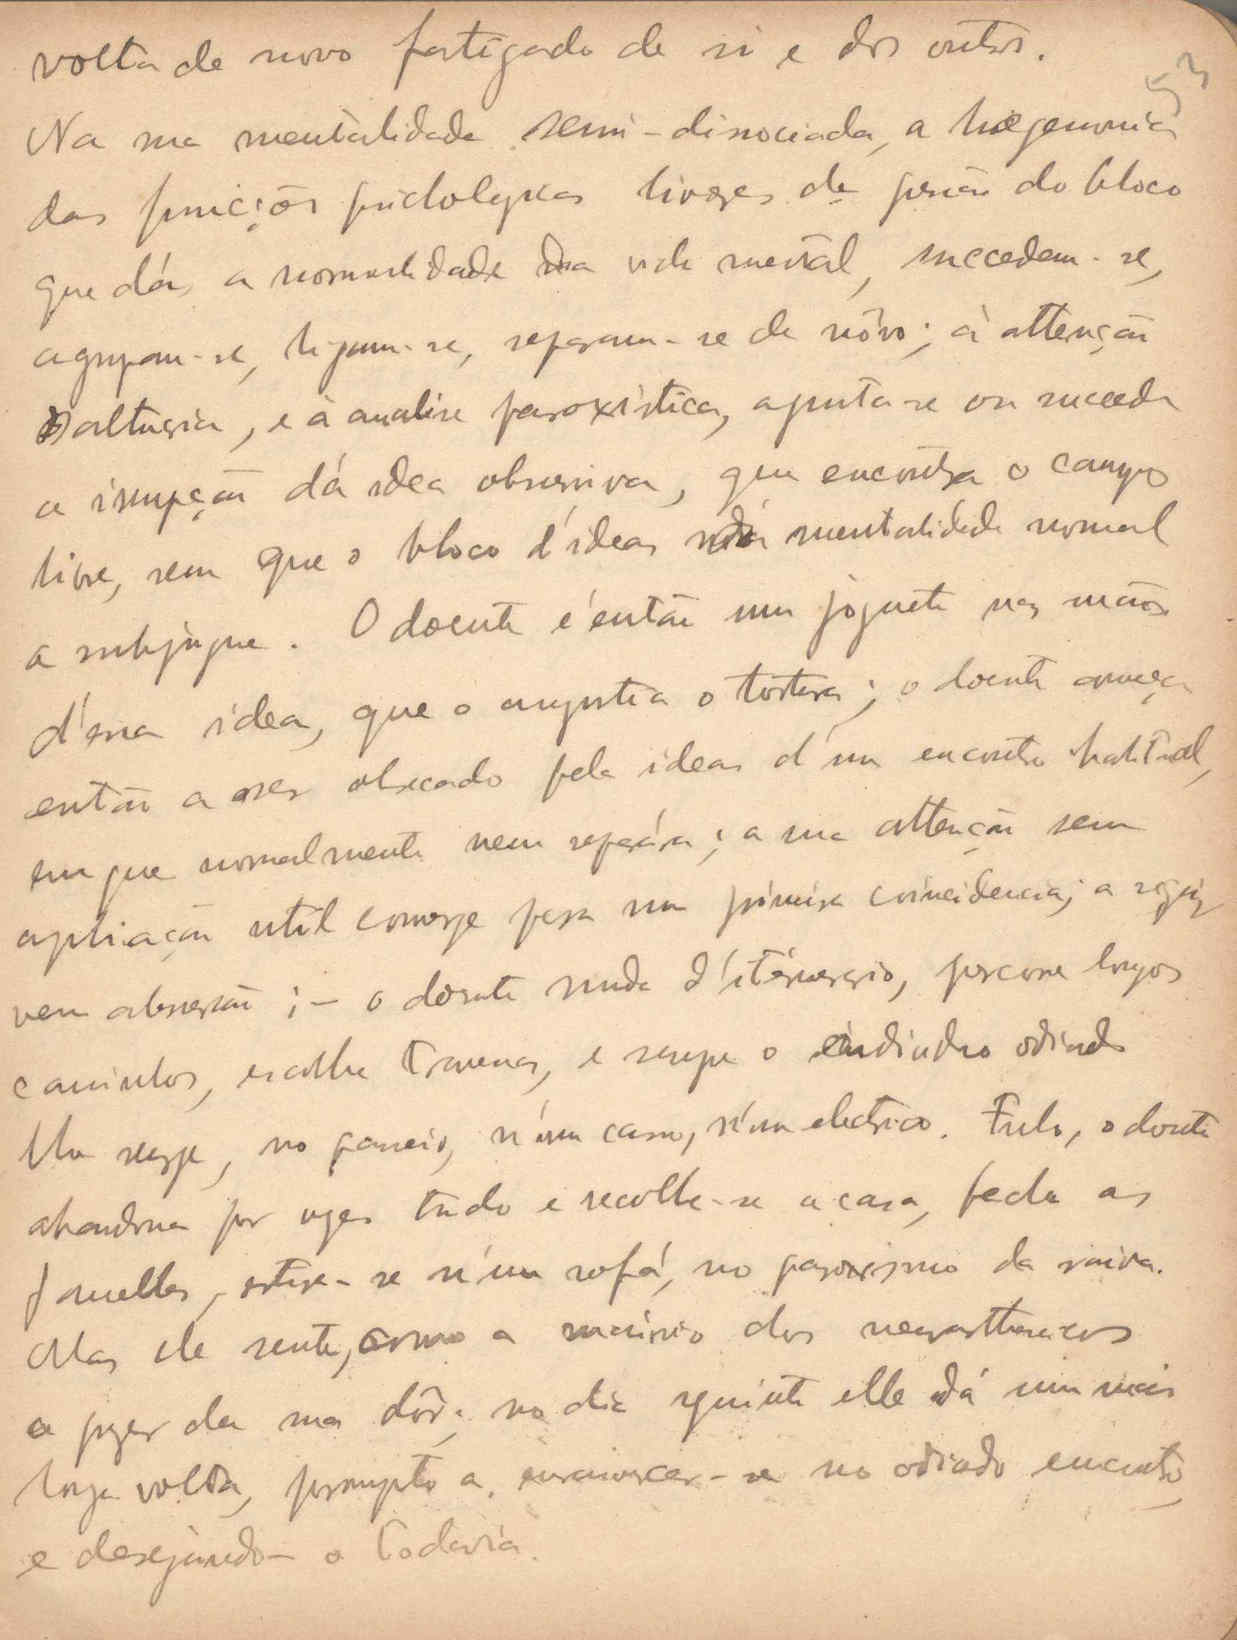 volta de novo fatigado de si e dos outros.
53
Na sua mentalidade semi-dissociada, a hegemonia
das funcções psichologicas livres da do bloco
que dá a normalidade da vida mental, succedem-se,
agrupam-se, ligam-se, separam-se de nôvo; à attenção
, e à analise paroxistica, ajunta-se ou succede
a irrupção da idea obsessiva, que encontra o campo
livre, sem que o bloco d'ideas da mentalidade normal
a subjugue. O doente é então um joguete nas mãos
d'essa idea, que o angustia o tortura; o doente começa
então a ser obsecado pela ideas d'um encontro habitual,
em que normalmente nem repára; a sua attenção sem
applicação util converge para uma primeira coincidencia; a seguir
vem obsessão; – o doente muda d'itenerario, percorre longos
caminhos, escolhe travessas, e surge o odiado
Ou surge, no passeio, n'uma casa, n'um electrico. Fulo, o doente
abandona por vezes tudo e recolhe-se a casa, fecha as
janellas, estira-se n'um sofá, no paroxismo da raiva.
Mas elle sente, como a maioria dos neurasthenicos
o prazer da sua dôr; no dia seguinte elle dá uma mais
longa volta, prompto a enraivecer-se no odiado encontro,
e desejando-o todavia.